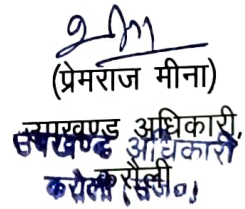 (प्रेमराज मीना)
उपखण्ड अधिकारी,
उपखण्ड अधिकारी
करौली
करौली (राज०)